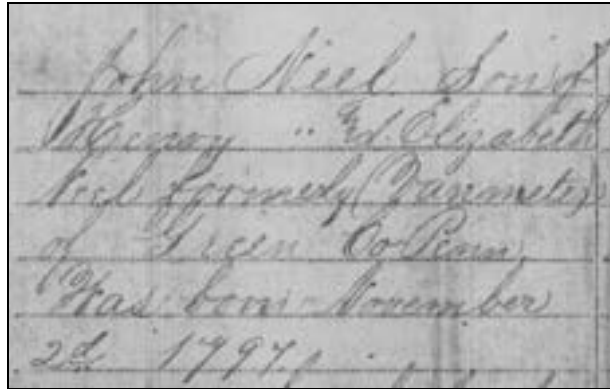 John Niel Son of
Henry " Ed. Elizabeth
Niel formerly (Vanmeter)
of Green Co Penn.
Was born November
2d 1797.